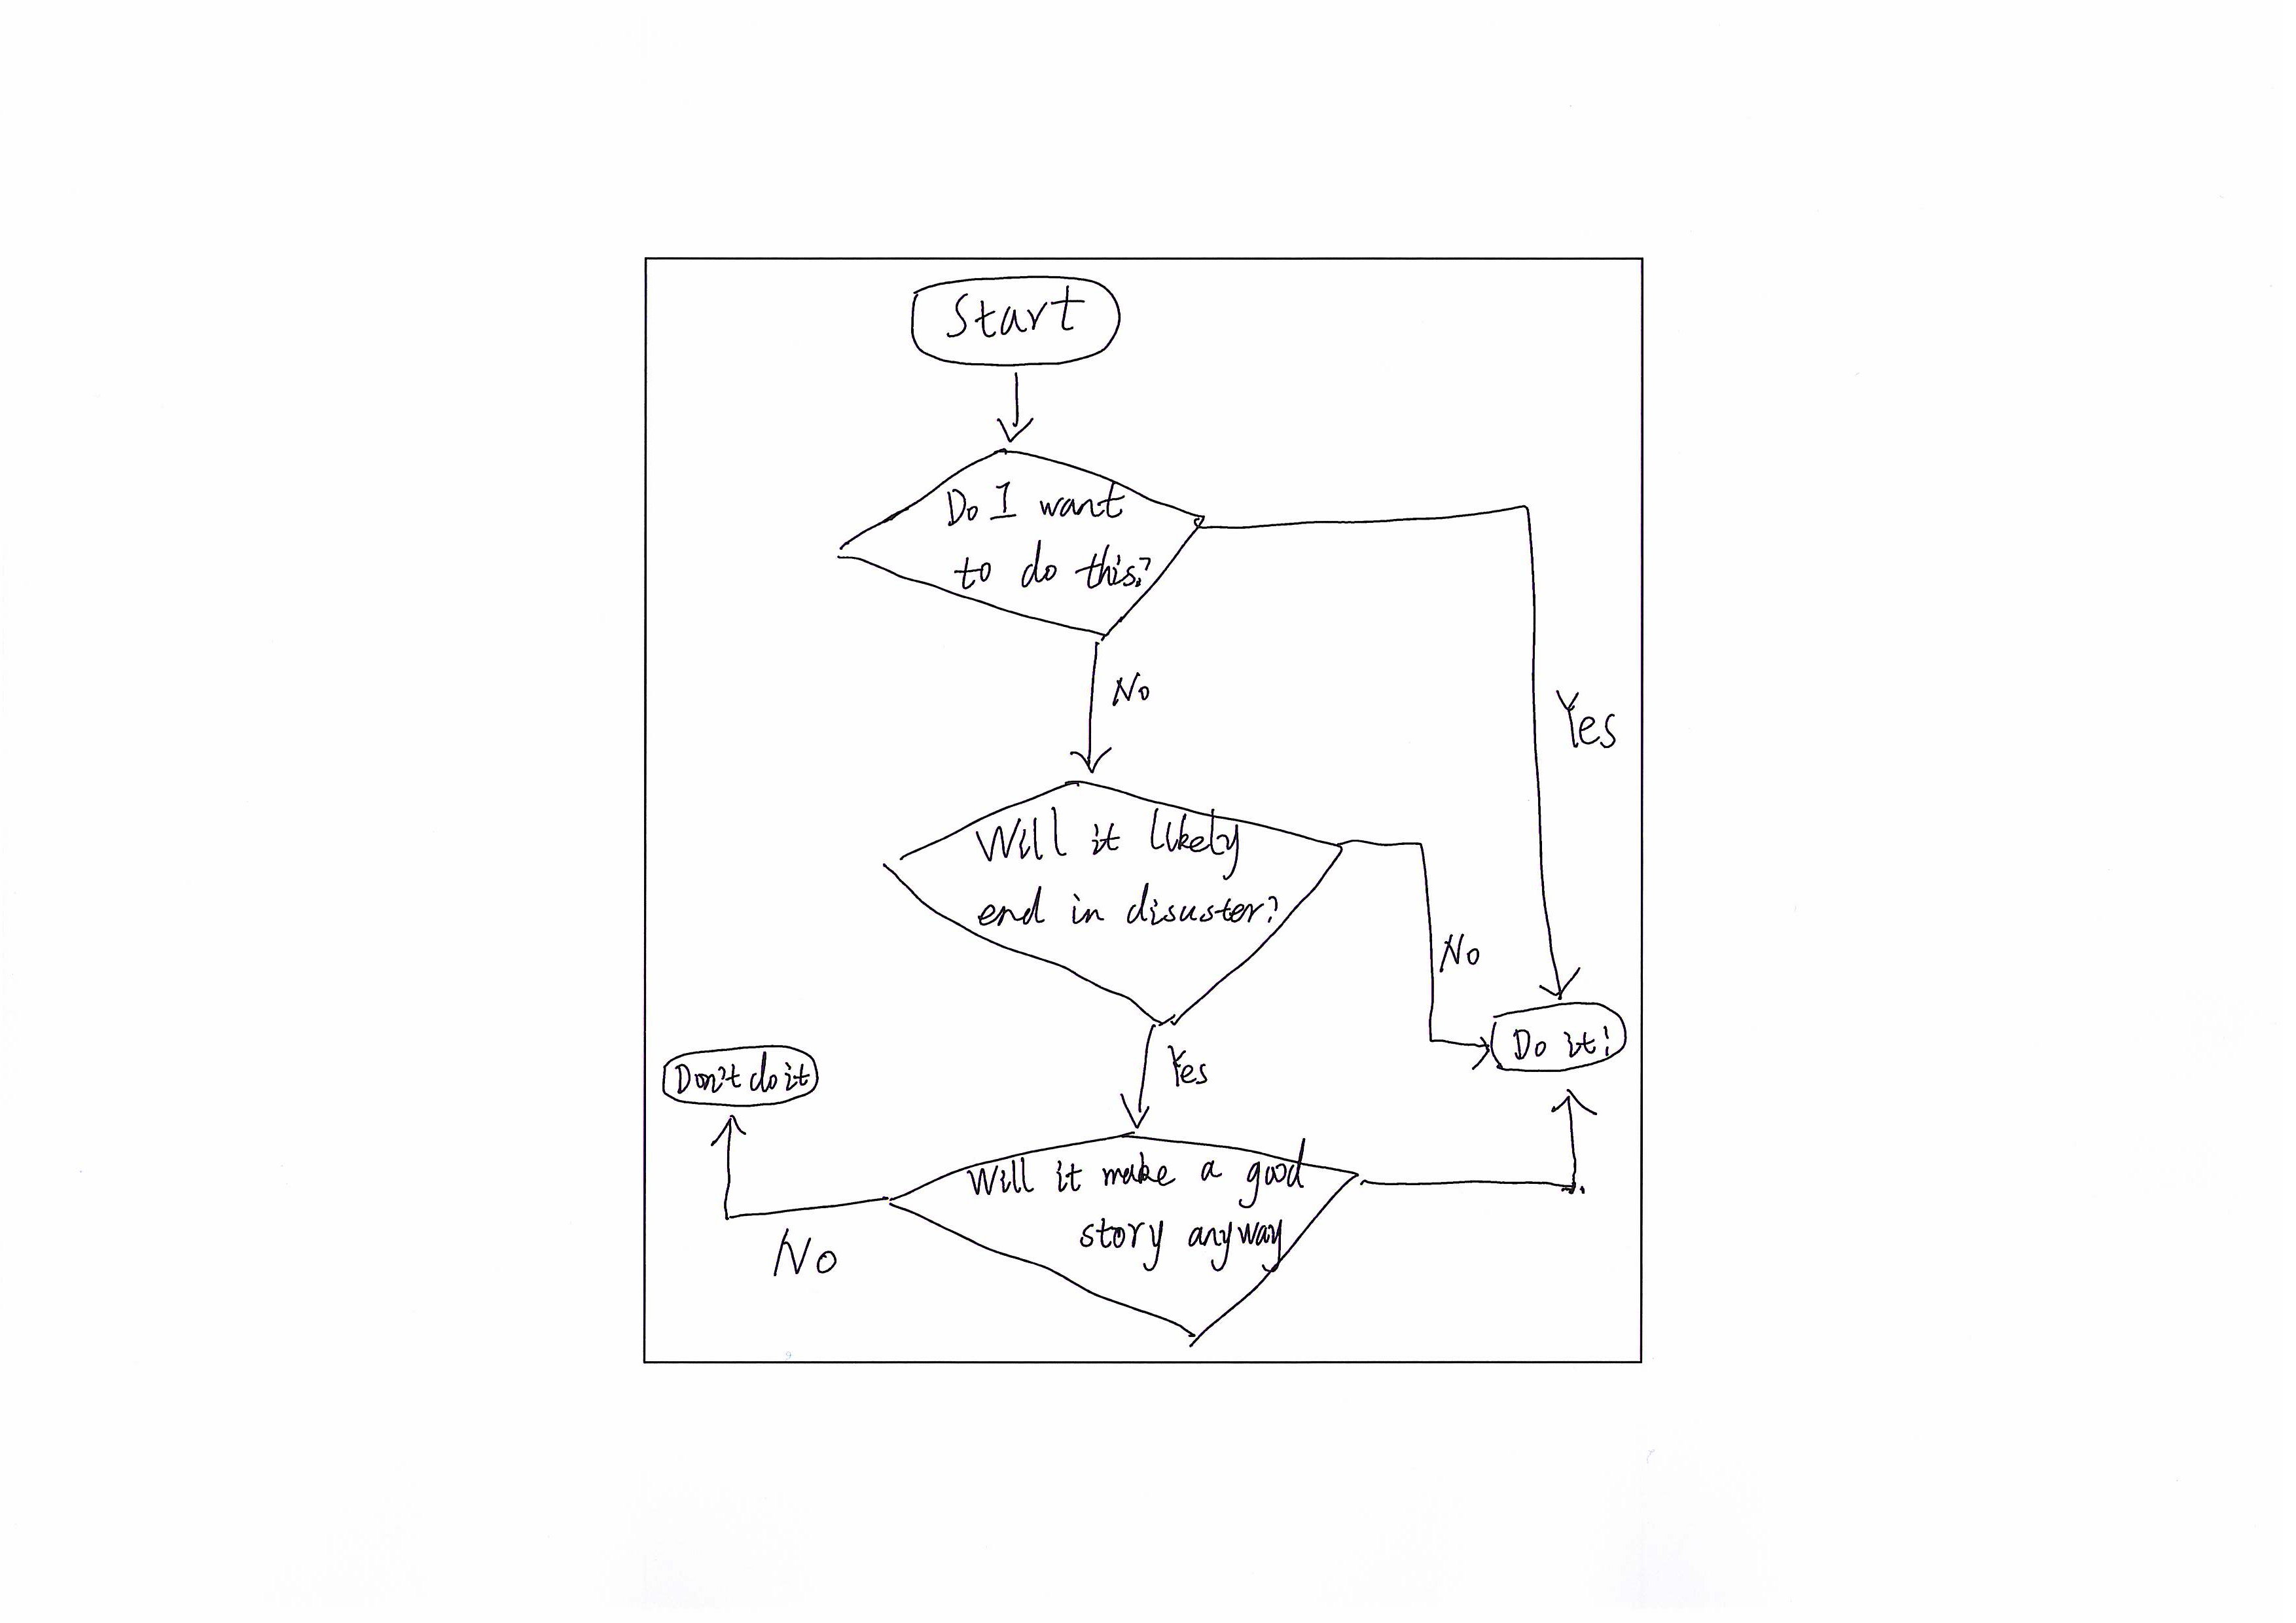 Start
Do I want
to do this?
No
Yes
Will it likely
end in disuster?
No
Yes
Do it!
Don't do it
Will it make a good
story anyway
No